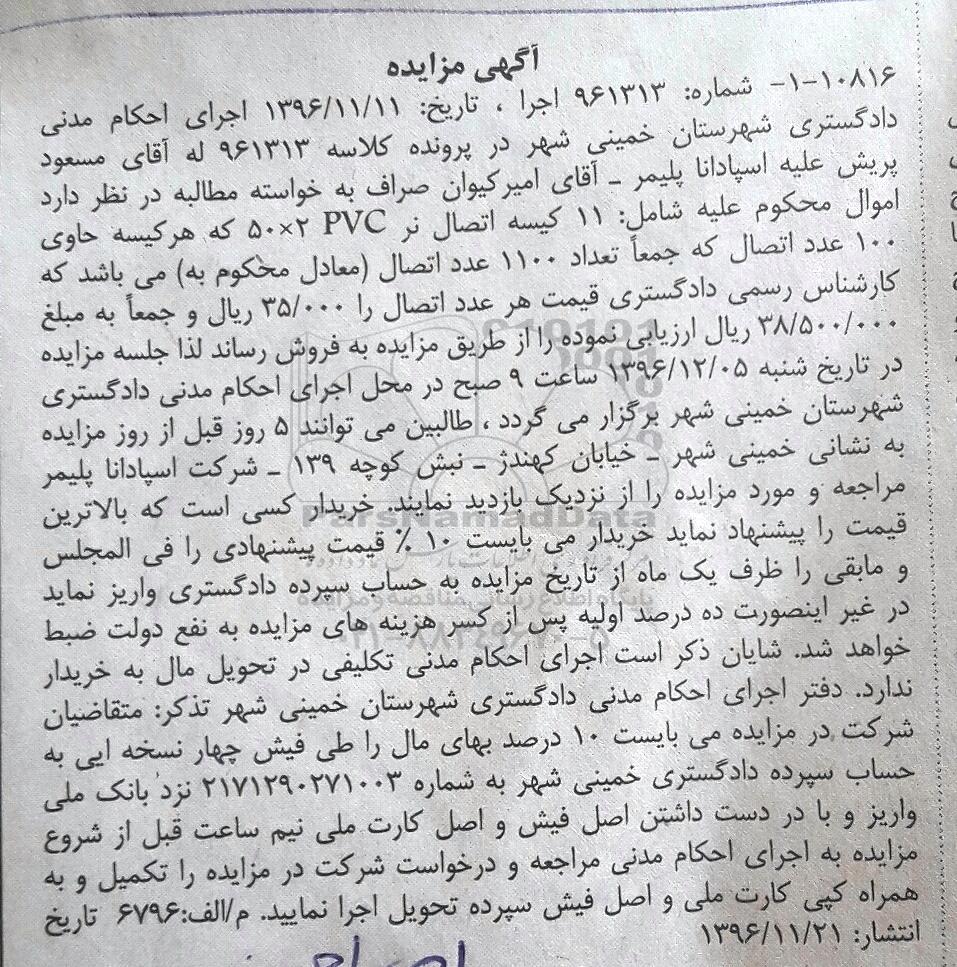 آگهی مزایده
۱-۱۰۸۱۶- شماره: ۹۶۱۳۱۳ اجرا ، تاریخ: ۱۳۹۶/۱۱/۱۱ اجرای احکام مدنی
دادگستری شهرستان خمینی شهر در پرونده کلاسه ۹۶۱۳۱۳ له آقای مسعود
پریش علیه اسپادانا پلیمر ـ آقای امیرکیوان صراف به خواسته مطالبه در نظر دارد
اموال محکوم علیه شامل: ۱۱ کیسه اتصال نر PVC ۵۰×۲ که هرکیسه حاوی
۱۰۰ عدد اتصال که جمعاً تعداد ۱۱۰۰ عدد اتصال (معادل محکوم به) می باشد که
کارشناس رسمی دادگستری قیمت هر عدد اتصال را ۳۵/۰۰۰ ریال و جمعاً به مبلغ
۳۸/۵۰۰/۰۰۰ ریال ارزیابی نموده را از طریق مزایده به فروش رساند لذا جلسه مزایده
در تاریخ شنبه ۱۳۹۶/۱۲/۰۵ ساعت ۹ صبح در محل اجرای احکام مدنی دادگستری
شهرستان خمینی شهر برگزار می گردد ، طالبین می توانند ۵ روز قبل از روز مزایده
به نشانی خمینی شهر ـ خیابان کهندژ ـ نبش کوچه ۱۳۹ ـ شرکت اسپادانا پلیمر
مراجعه و مورد مزایده را از نزدیک بازدید نمایند. خریدار کسی است که بالاترین
قیمت را پیشنهاد نماید خریدار می بایست ۱۰ ٪ قیمت پیشنهادی را فی المجلس
و مابقی را ظرف یک ماه از تاریخ مزایده به حساب سپرده دادگستری واریز نماید
در غیر اینصورت ده درصد اولیه پس از کسر هزینه های مزایده به نفع دولت ضبط
خواهد شد. شایان ذکر است اجرای احکام مدنی تکلیفی در تحویل مال به خریدار
ندارد. دفتر اجرای احکام مدنی دادگستری شهرستان خمینی شهر تذکر: متقاضیان
شرکت در مزایده می بایست ۱۰ درصد بهای مال را طی فیش چهار نسخه ایی به
حساب سپرده دادگستری خمینی شهر به شماره ۲۱۷۱۲۹۰۲۷۱۰۰۳ نزد بانک ملی
واریز و با در دست داشتن اصل فیش و اصل کارت ملی نیم ساعت قبل از شروع
مزایده به اجرای احکام مدنی مراجعه و درخواست شرکت در مزایده را تکمیل و به
همراه کپی کارت ملی و اصل فیش سپرده تحویل اجرا نمایید. م/الف:۶۷۹۶ تاریخ
انتشار: ۱۳۹۶/۱۱/۲۱
ParsNamadData
پایگاه اطلاع رسانی مناقصه و مزایده